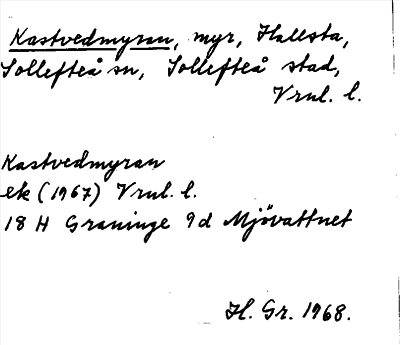 Kastvedmyran, myr, Hallsta,
Sollefteå sn, Sollefteå stad,
Vrnl. l.
Kastvedmyran
ek (1967) Vrnl. l.
18 H Graninge 9d Mjövattnet
H. Gr. 1968.